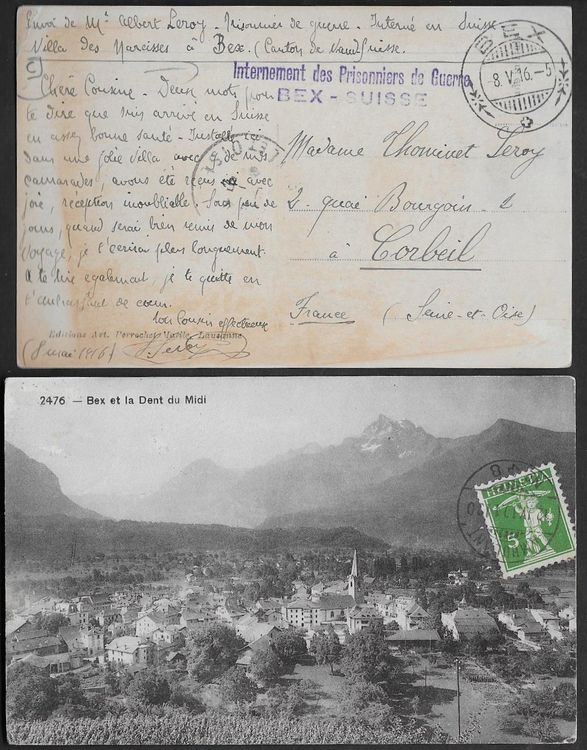 Envoi de Mr Albert Leroy - Prisonnier de guerre - Interné en Suisse
Villa des Narcisses à Bex. (Canton de Vaud) Suisse.
BEX
8.V.16.-5
Internement des Prisonniers de Guerre
BEX - SUISSE
Chère Cousine - Deux mots pour
te dire que suis arrivé en Suisse
en assez bonne santé - Installé ici
dans une jolie villa avec de mes
camarades, avons été reçus ici avec
joie, réception inoubliable. Sous peu de
jours, quand serai bien remis de mon
voyage, je t'écrirai plus longuement
te lire également, je te quitte en
t'embrassant de coeur.
ton Cousin affectueux
Editions Art. Perrochet-Matile, Lausanne
(8 mai 1916)
Madame Thominet Leroy
2. quai Bourgoin - 2
à Corbeil
France (Seine-et-Oise)
2476 — Bex et la Dent du Midi
HELVETIA
5